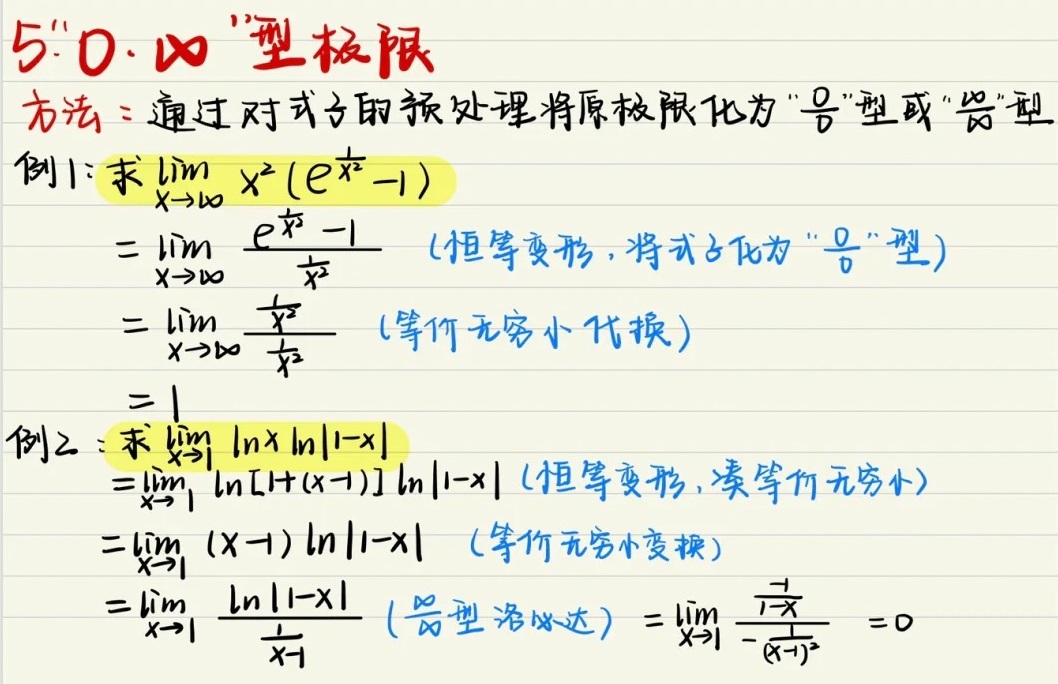 5."0·∞"型极限
方法：通过对式子的预处理将原极限化为"0/0"型或"∞/∞"型
例1：求 lim_{x→∞} x²(e^{1/x²}-1)
= lim_{x→∞} (e^{1/x²}-1)/(1/x²) (恒等变形，将式子化为"0/0"型)
= lim_{x→∞} (1/x²)/(1/x²) (等价无穷小代换)
= 1
例2：求 lim_{x→1} lnx ln|1-x|
= lim_{x→1} ln[1+(x-1)] ln|1-x| (恒等变形，凑等价无穷小)
= lim_{x→1} (x-1) ln|1-x| (等价无穷小变换)
= lim_{x→1} ln|1-x|/(1/(x-1)) (∞/∞型洛必达) = lim_{x→1} (-1/(1-x))/(-1/(x-1)²) = 0